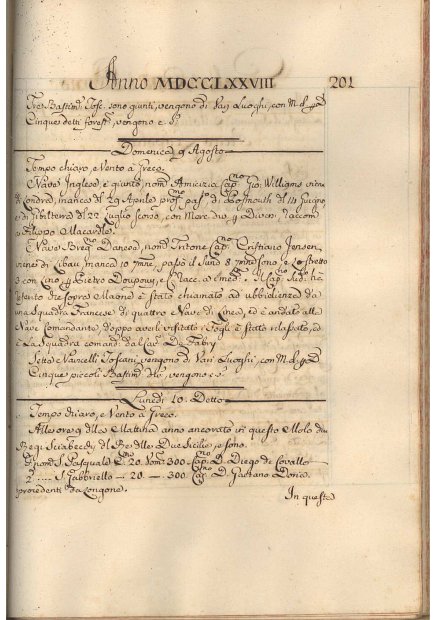 Anno MDCCLXXVIII 201
Tre Bastim.ti Tosc. sono giunti, vengono di Vari Luoghi, con M. e
Cinque detti forest.i vengono e. S.
Domenica 9 Agosto
Tempo chiaro, e Vento à Greco.
Nave Inglese, è giunta, nom.ta Amicizia Cap.no Gio: Williams viene
Londra, manca di 29 Aprile pas.o di Posmouth di 14 Giugno
e di Gibilterra di 22 Luglio scorso, con Merc. div. p. Diversi, raccom.
Filippo Macardle
Nave Danese, nom.ta Tritone Cap.no Cristiano Jensen,
viene di Libau manca 10 passò il Sund 8 sono, e lo stretto
con Lino p. Pietro Doupouy, e Il Cap. Sud.to hà
riferito che sopra Maone è stato chiamato ad ubbidienza da
una Squadra Francese di quattro Nave di Linea, ed è andato alla
Nave Comandante, e doppo averli visitati i Fogli è stato rilasciato, ed
è La Squadra comand. dal Cav. De Fabry
Sette Navicelli Toscani, vengono di Vari Luoghi, con M. e
Cinque piccoli Bastim.ti vengono e
Lunedì 10. Detto
Tempo chiaro, e Vento à Greco.
Alle ore 9 della Mattina anno ancorato in questo Molo due
Regi Sciabecchi del Re delle Due Sicilie, e sono.
S. Pasquale C. 20. Vom. 300 Cap.no D. Diego de Cevallos
2 S. Gabbriello - 20 - 300 Cap.no D. Gaetano Doria
provenienti da Longone.
In questo